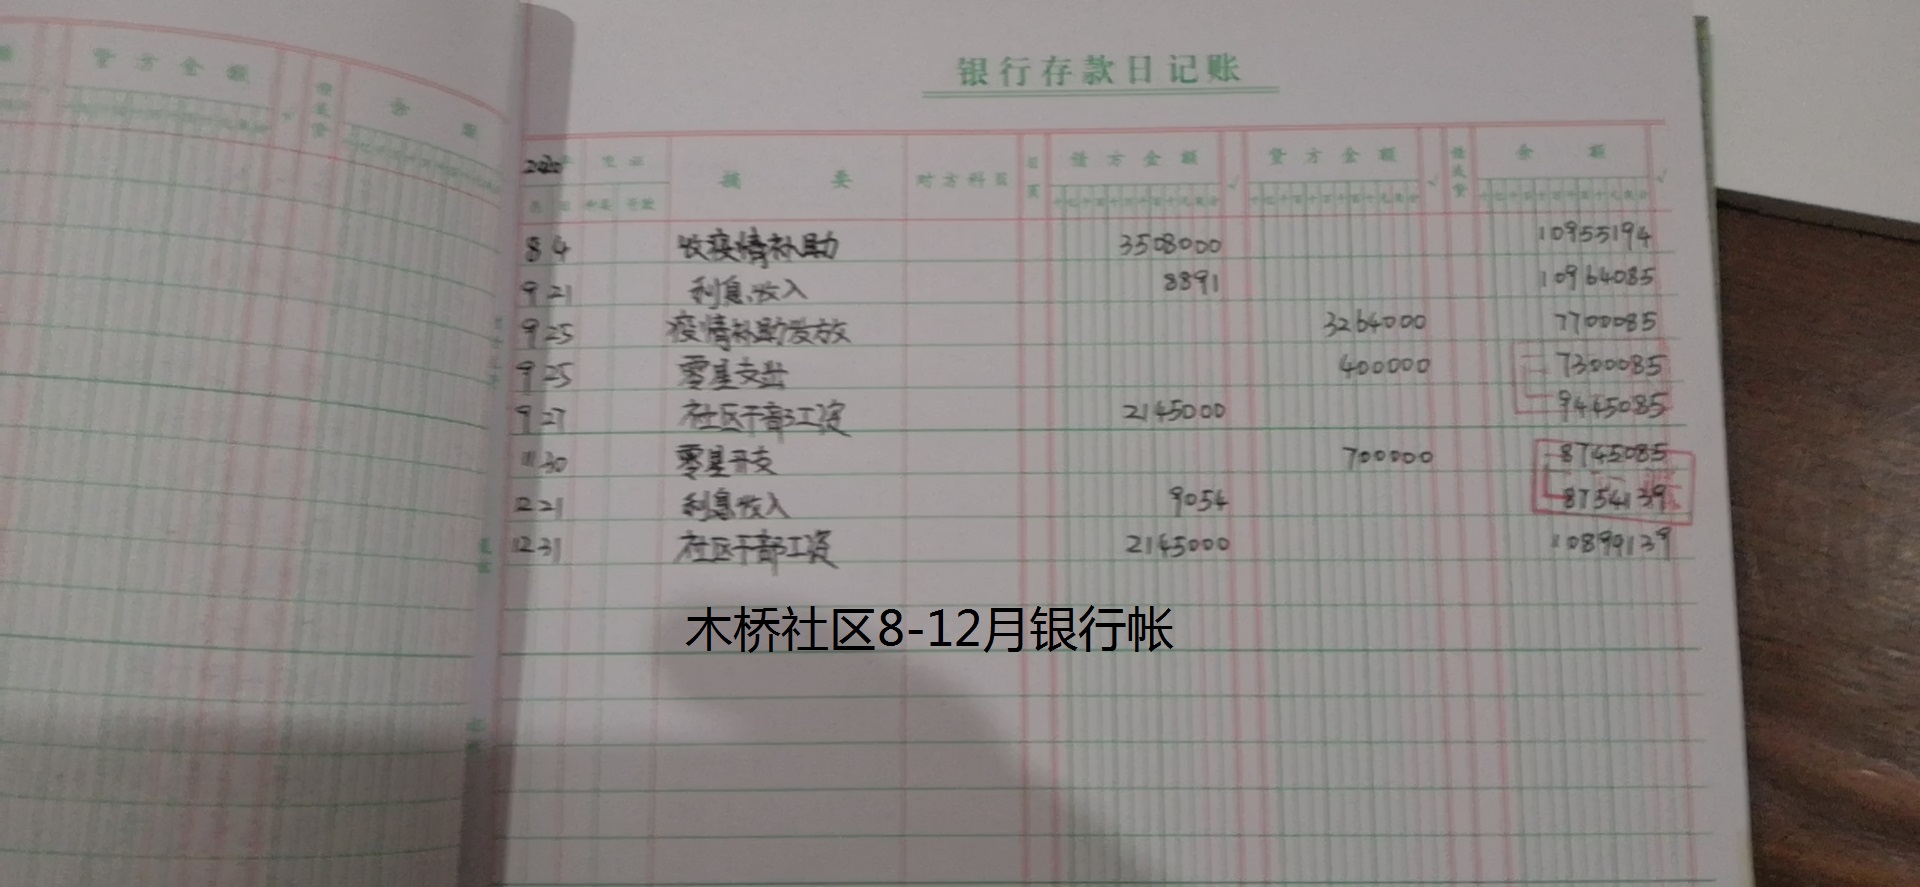 贷方金额
余额
银行存款日记账
2020年 凭证 摘要 对方科目 日页 借方金额 √ 贷方金额 √ 借或贷 余额 √
月 日 种类 号数
8 4 收疫情补助 3508000 10955194
9 21 利息收入 8891 10964085
9 25 疫情补助发放 3264000 7700085
9 25 零星支出 400000 7300085
9 27 社区干部工资 2145000 9445085
11 30 零星开支 700000 8745085
12 21 利息收入 9054 8754139
12 31 社区干部工资 2145000 10899139
木桥社区8-12月银行帐